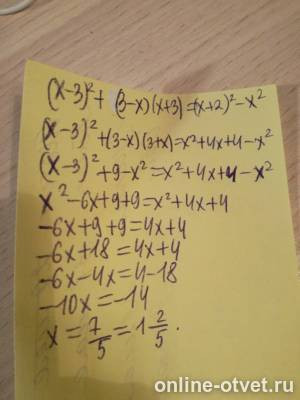 (x-3)²+ (3-x)(x+3)=(x+2)²-x²
(x-3)²+(3-x)(3+x)=x²+4x+4-x²
(x-3)²+9-x²=x²+4x+4-x²
x²-6x+9+9=x²+4x+4
-6x+9+9=4x+4
-6x+18=4x+4
-6x-4x=4-18
-10x=-14
x=7/5=1 2/5.
online-otvet.ru